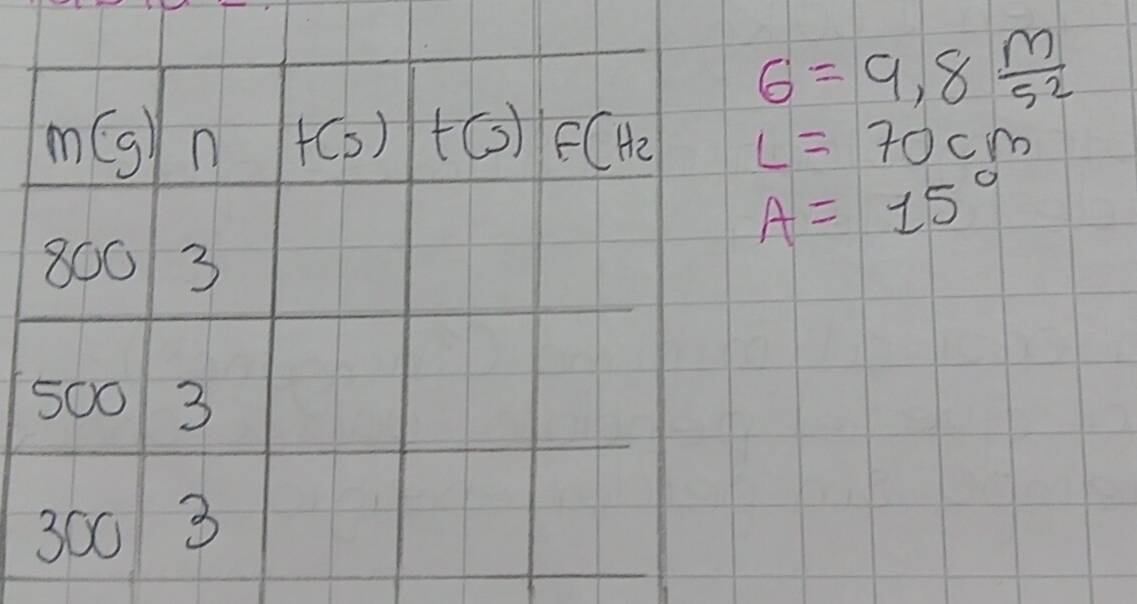 m(g) n t(s) t(s) F(Hz
800 3
500 3
300 3
G = 9,8 m/s²
L = 70 cm
A = 15°